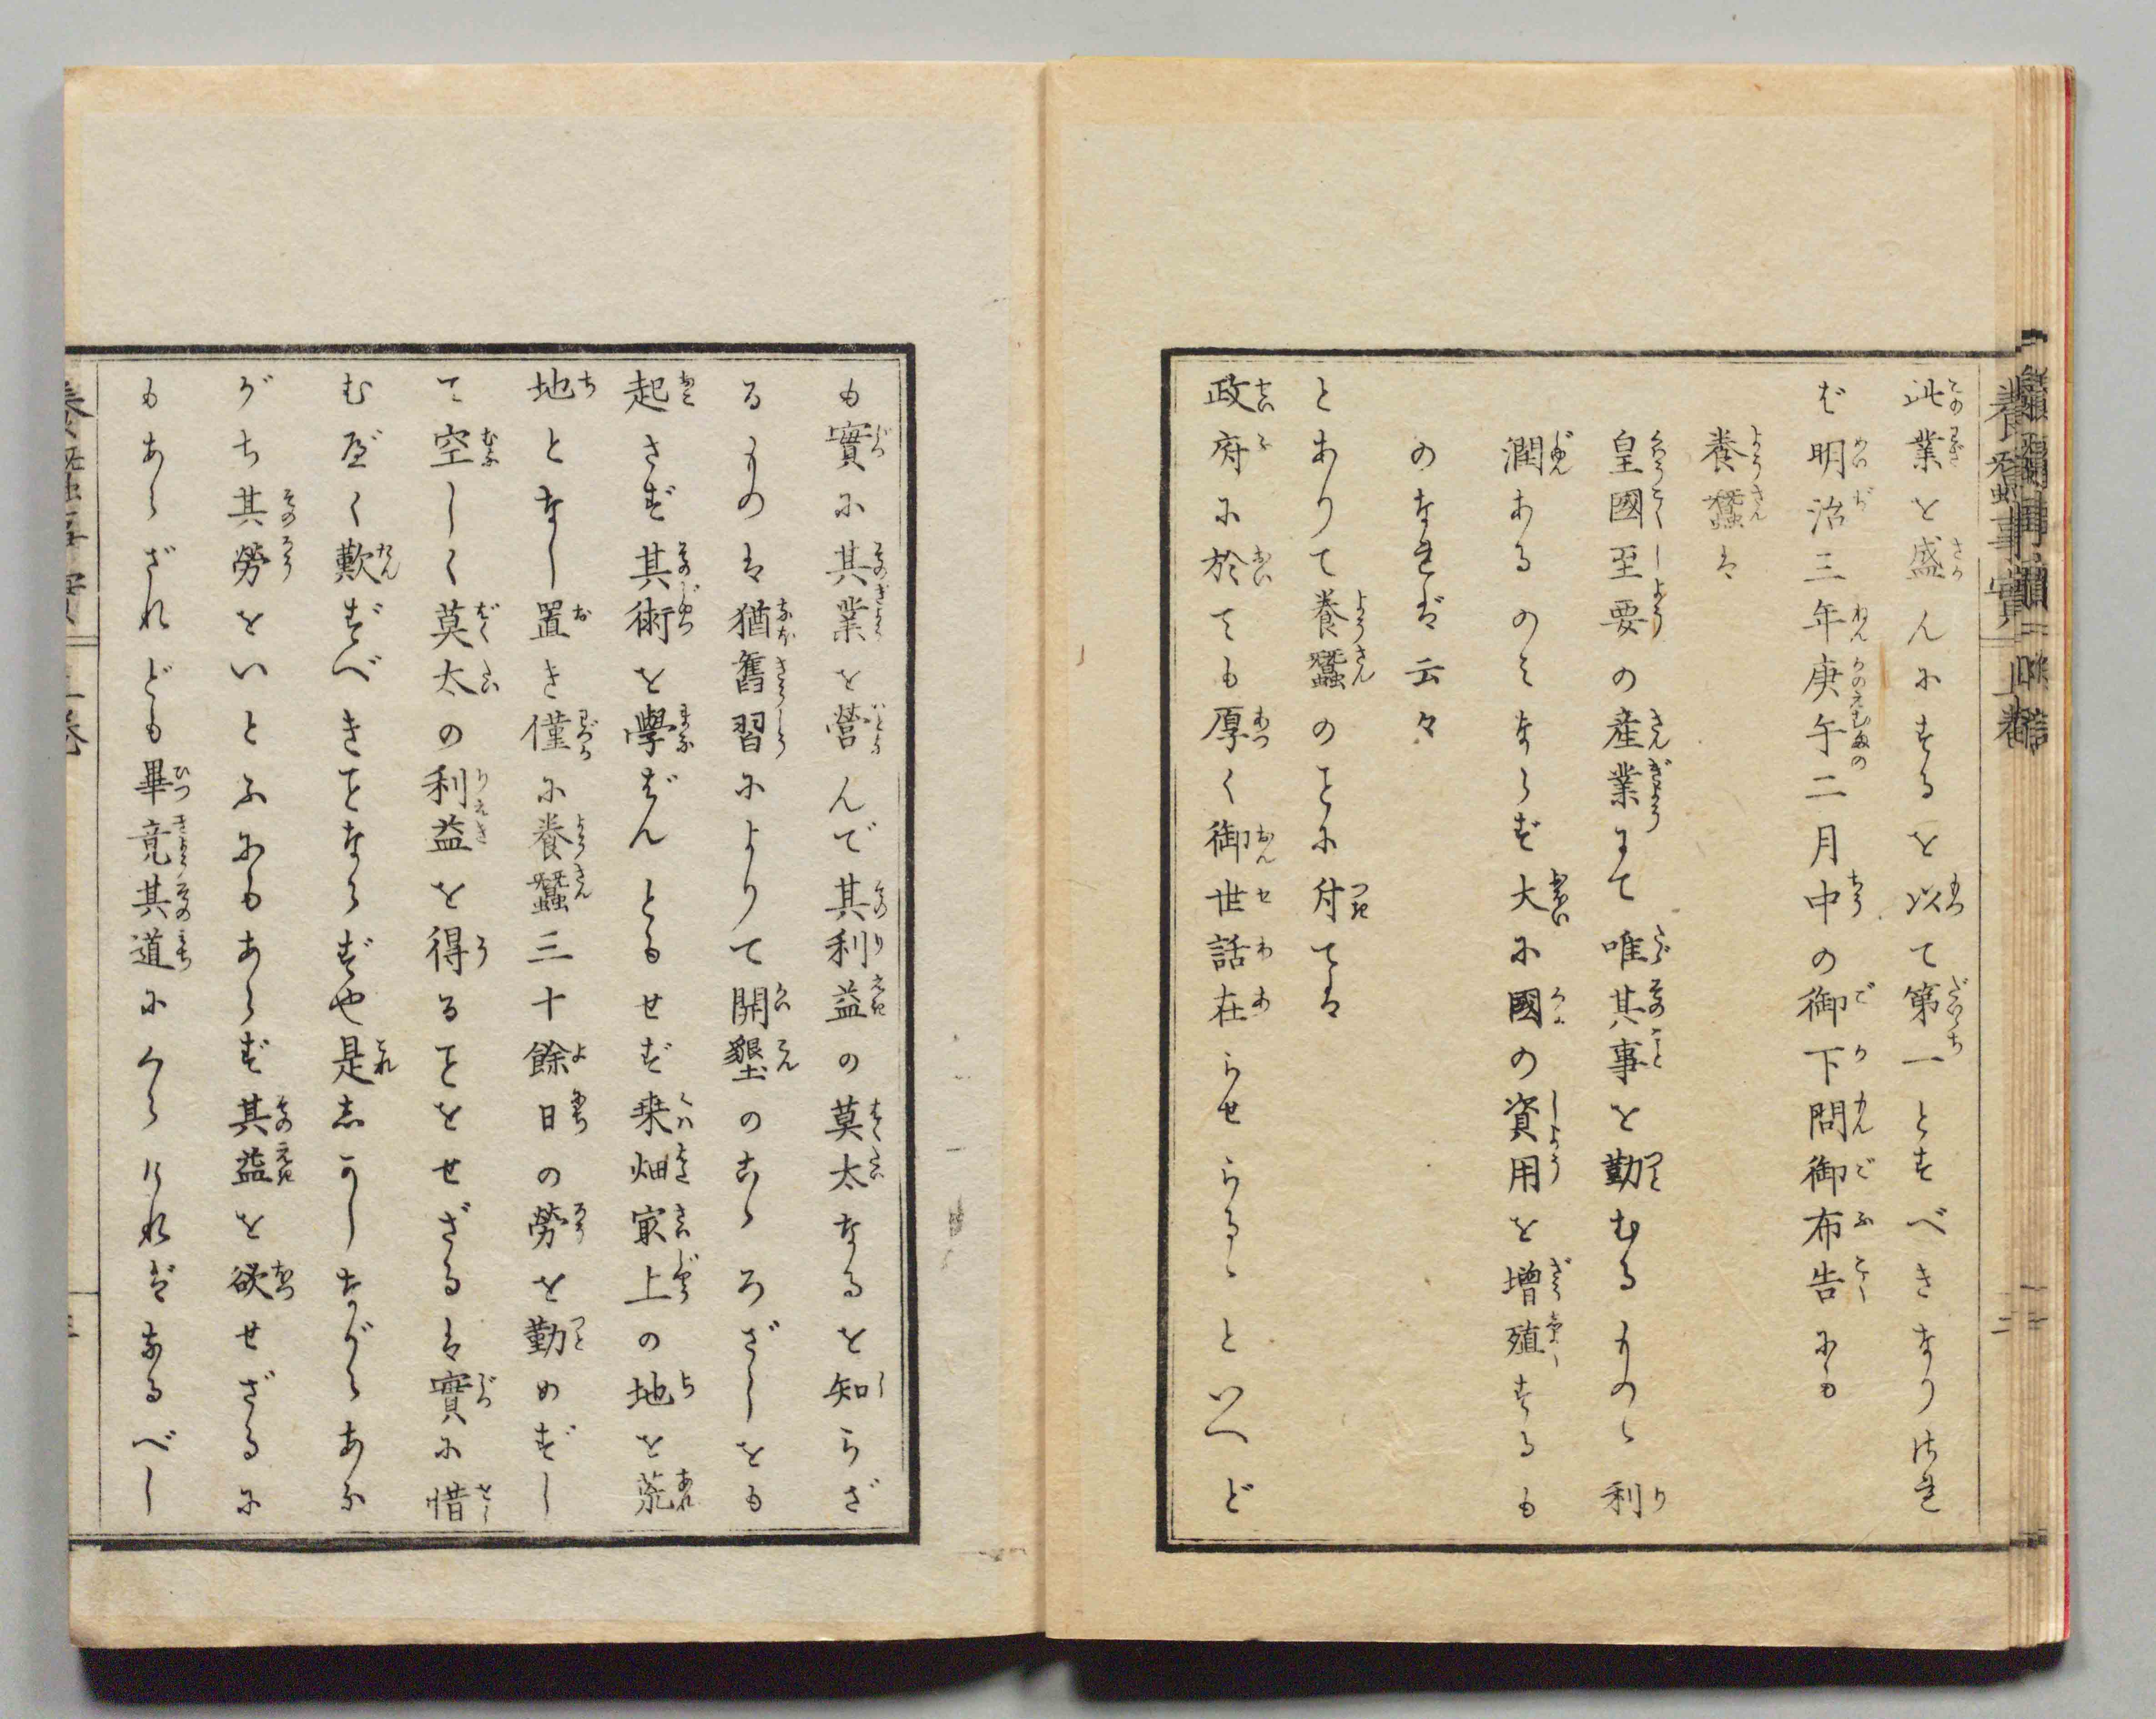 此業を盛んにするを以て第一とすべきなりされ
ば明治三年庚午二月中の御下問御布告にも
養蠶は
皇國至要の産業にて唯其事を勤むるものゝ利
潤あるのみならず大に國の資用を増殖するも
のなれば云々
とありて養蠶のことに付ては
政府に於ても厚く御世話在らせらるゝといへど
も實に其業を営んで其利益の莫太なるを知らざ
るものは猶舊習によりて開墾のこゝろざしをも
起さず其術を學ばんともせず桒畑㝡上の地を荒
地となし置き僅に養蠶三十餘日の勞を勤めずし
て空しく莫太の利益を得ることをせざるは實に惜
むべく歎ずべきことならずや是しかしながらあな
がち其勞をいとふにもあらず其益を欲せざるに
もあらざれども畢竟其道にくらければなるべし
養蠶事實
上巻
二